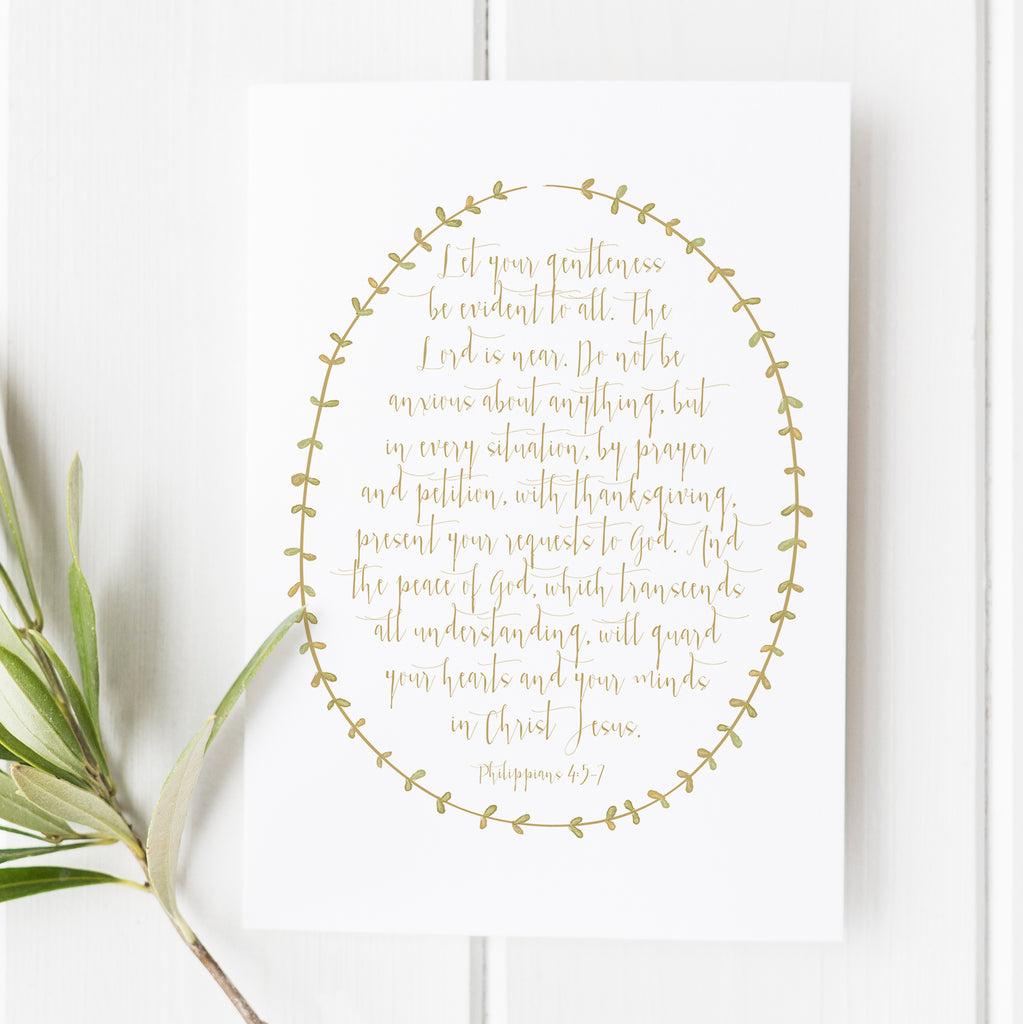 Let your gentleness
be evident to all. The
Lord is near. Do not be
anxious about anything, but
in every situation, by prayer
and petition, with thanksgiving,
present your requests to God. And
the peace of God, which transcends
all understanding, will guard
your hearts and your minds
in Christ Jesus.
Philippians 4:5-7